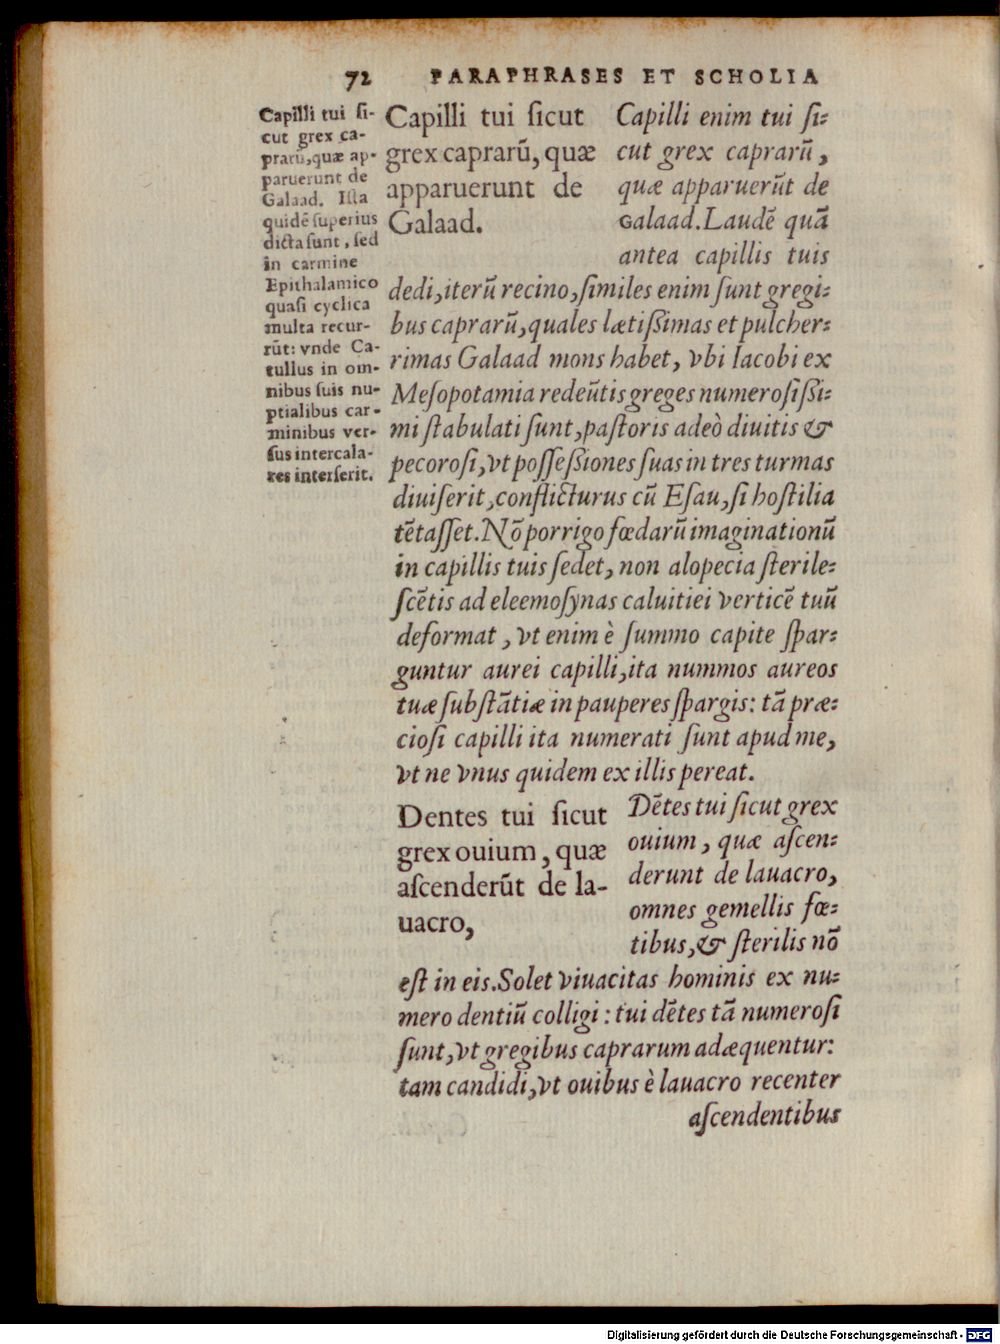 72 PARAPHRASES ET SCHOLIA
Capilli tui ſi-
cut grex ca-
prarū, quæ ap-
paruerunt de
Galaad. Iſta
quidē ſuperius
dicta ſunt, ſed
in carmine
Epithalamico
quaſi cyclica
multa recur-
rūt: vnde Ca-
tullus in om-
nibus ſuis nu-
ptialibus car-
minibus ver-
ſus intercala-
res interſerit.
Capilli tui ſicut
grex caprarū, quæ
apparuerunt de
Galaad.
Capilli enim tui ſi-
cut grex caprarū,
quæ apparuerūt de
Galaad. Laudē quā
antea capillis tuis
dedi, iterū recino, ſimiles enim ſunt gregi-
bus caprarū, quales lætiſsimas et pulcher-
rimas Galaad mons habet, vbi Iacobi ex
Meſopotamia redeūtis greges numeroſiſsi-
mi ſtabulati ſunt, paſtoris adeò diuitis &
pecoroſi, vt poſſeſsiones ſuas in tres turmas
diuiſerit, conflicturus cū Eſau, ſi hoſtilia
tētaſſet. Nō porrigo fœdarū imaginationū
in capillis tuis ſedet, non alopecia ſterile-
ſcētis ad eleemoſynas caluitiei verticē tuū
deformat, vt enim è ſummo capite ſpar-
guntur aurei capilli, ita nummos aureos
tuæ ſubſtātiæ in pauperes ſpargis: tā præ-
cioſi capilli ita numerati ſunt apud me,
vt ne vnus quidem ex illis pereat.
Dentes tui ſicut
grex ouium, quæ
aſcenderūt de la-
uacro,
Dētes tui ſicut grex
ouium, quæ aſcen-
derunt de lauacro,
omnes gemellis fœ-
tibus, & ſterilis nō
eſt in eis. Solet viuacitas hominis ex nu-
mero dentiū colligi: tui dētes tā numeroſi
ſunt, vt gregibus caprarum adæquentur:
tam candidi, vt ouibus è lauacro recenter
aſcendentibus
Digitalisierung gefördert durch die Deutsche Forschungsgemeinschaft - DFG